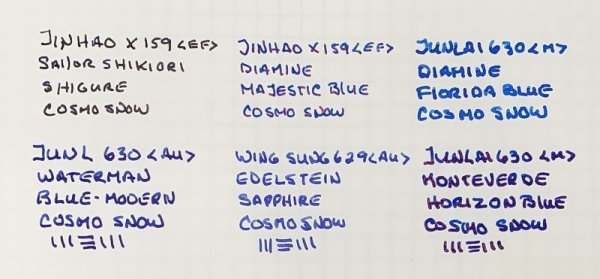 JINHAO X159 <EF>
SAILOR SHIKIORI
SHIGURE
COSMO SNOW
JINHAO X159 <EF>
DIAMINE
MAJESTIC BLUE
COSMO SNOW
JUNLAI 630 <M>
DIAMINE
FLORIDA BLUE
COSMO SNOW
JUNL 630 <AU>
WATERMAN
BLUE-MODERN
COSMO SNOW
WING SUNG 629 <AU>
EDELSTEIN
SAPPHIRE
COSMO SNOW
JUNLAI 630 <M>
MONTEVERDE
HORIZON BLUE
COSMO SNOW